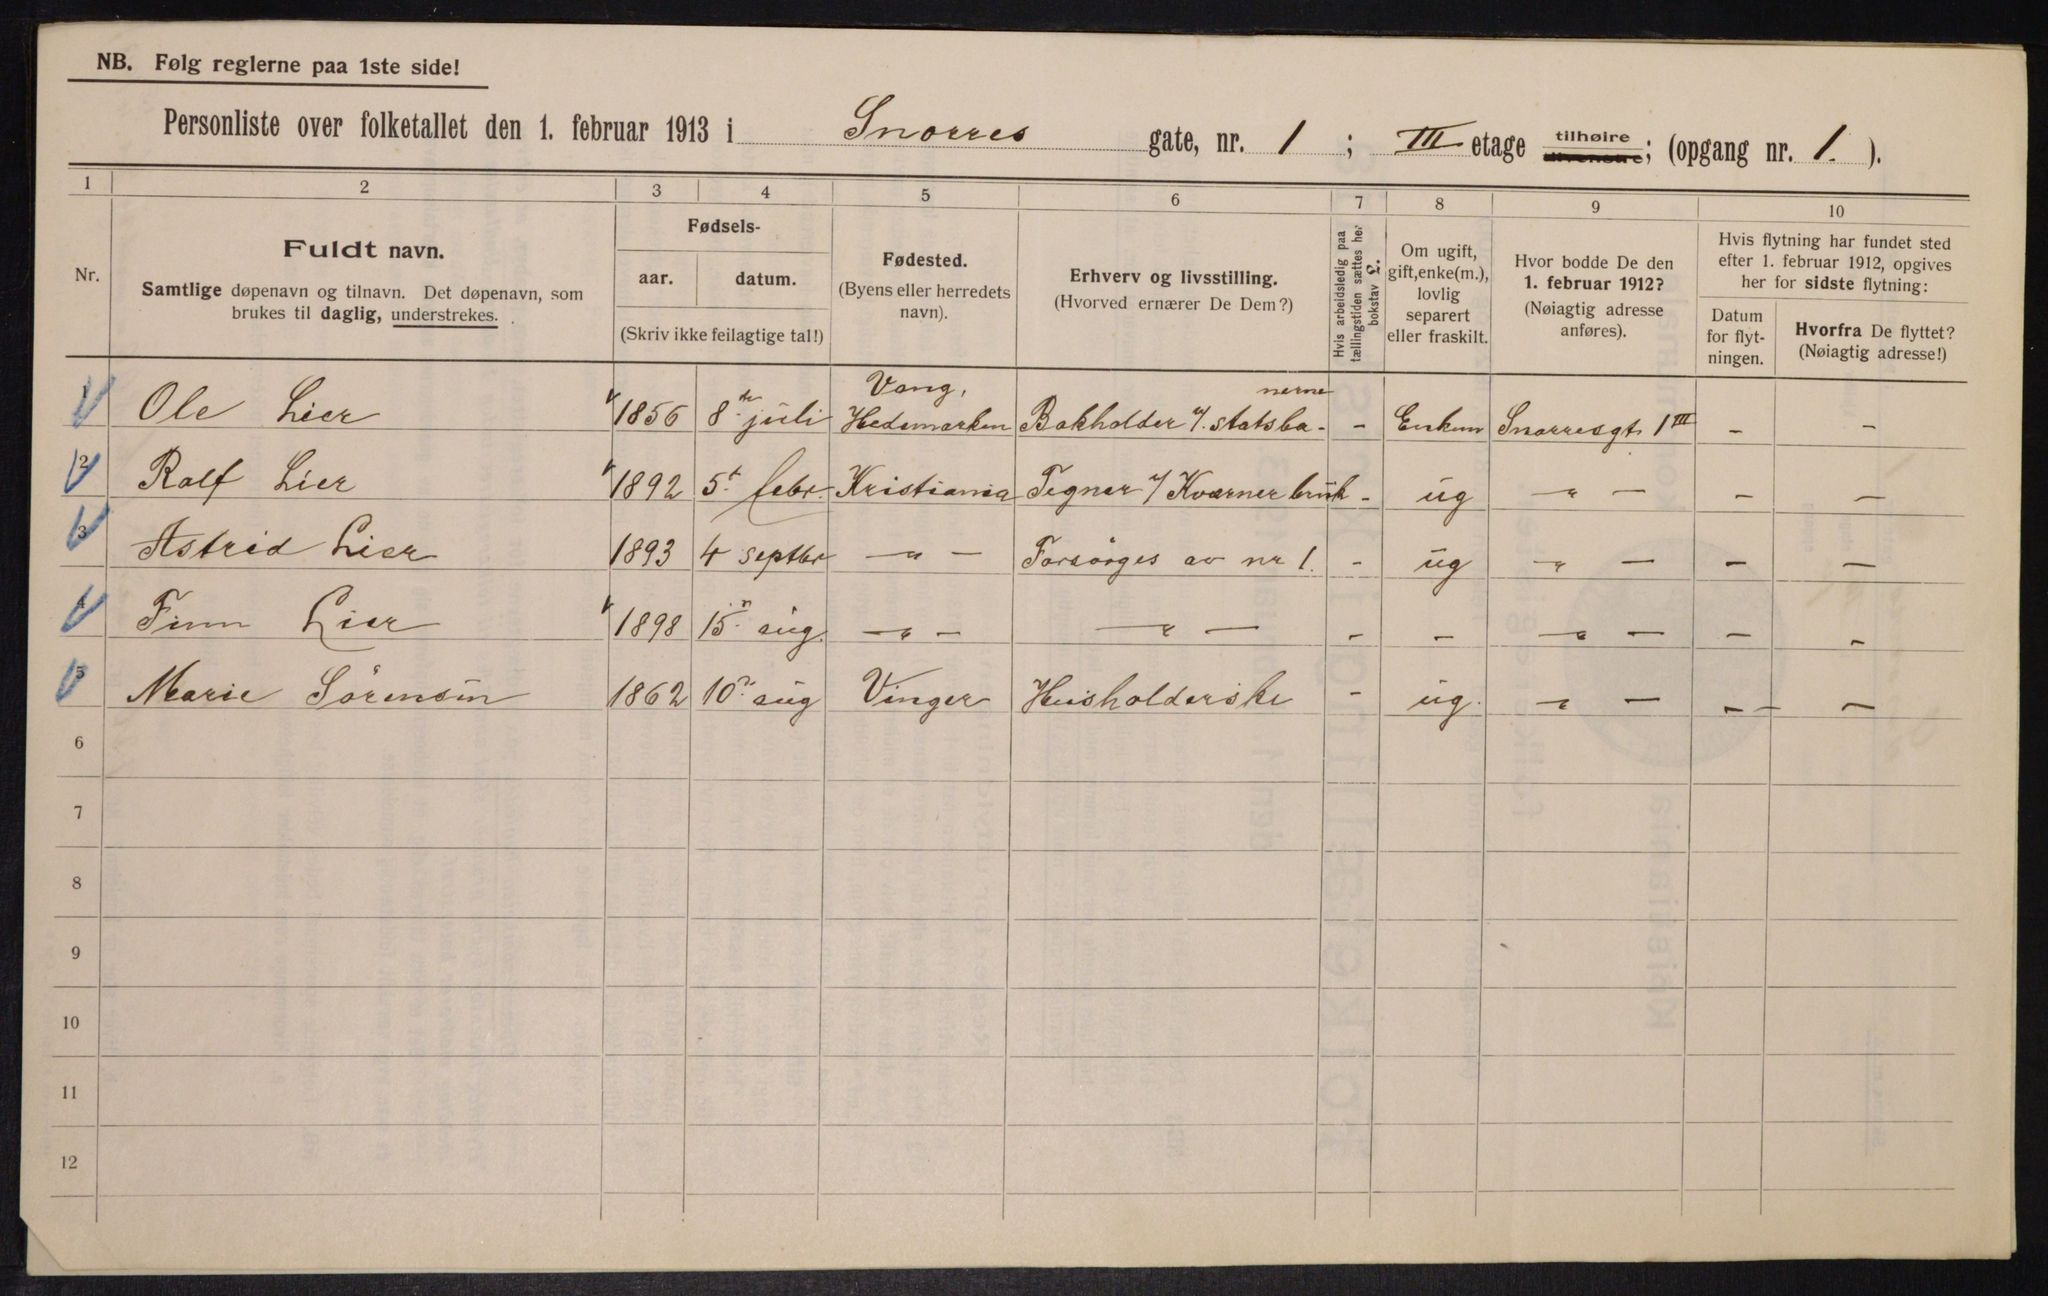 NB. Følg reglerne paa 1ste side!
Personliste over folketallet den 1. februar 1913 i Snorres gate, nr. 1; III etage tilhøire; (opgang nr. 1.).
1 2 3 4 5 6 7 8 9 10
Nr.
Fuldt navn.
Samtlige døpenavn og tilnavn. Det døpenavn, som
brukes til daglig, understrekes.
Fødsels-
aar. datum.
(Skriv ikke feilagtige tal!)
Fødested.
(Byens eller herredets
navn).
Erhverv og livsstilling.
(Hvorved ernærer De Dem?)
Hvis arbeidsledig paa
tællingstiden sættes her
bokstav L.
Om ugift,
gift, enke(m.),
lovlig
separert
eller fraskilt.
Hvor bodde De den
1. februar 1912?
(Nøiagtig adresse
anføres).
Hvis flytning har fundet sted
efter 1. februar 1912, opgives
her for sidste flytning:
Datum
for flyt-
ningen.
Hvorfra De flyttet?
(Nøiagtig adresse!)
Vang, nerne
1 Ole Lier 1856 8de juli Hedemarken Bokholder v/. statsba- - Enkem Snorresgt. 1 III - -
2 Rolf Lier 1892 5t febr. Kristiania Tegner v/ Kværner bruk - ug -"- - -
3 Astrid Lier 1893 4 septbr -"- Forsörges av nr 1. - ug -"- - -
4 Finn Lier 1898 15n aug. -"- -"- - - -"- - -
5 Marie Sörensen 1862 10n aug Vinger Husholderske - ug. -"- - -
6
7
8
9
10
11
12